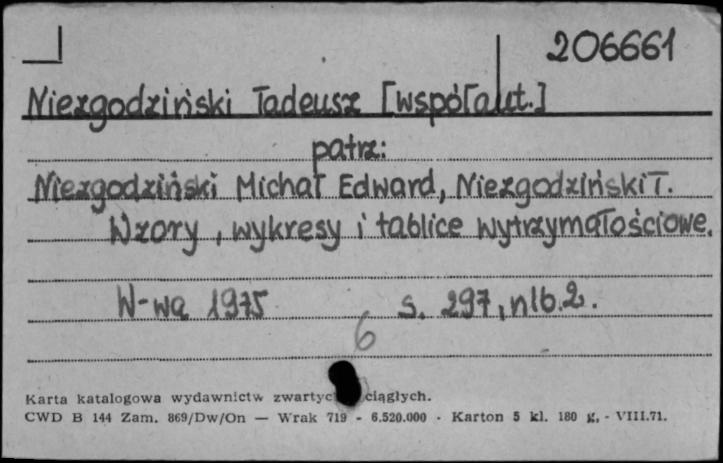 206661
Niezgodziński Tadeusz [współaut.]
patrz:
Niezgodziński Michał Edward, Niezgodziński T.
Wzory, wykresy i tablice wytrzymałościowe.
W-wa 1975 s. 297, nlb. 2.
6
Karta katalogowa wydawnictw zwartyc ciągłych.
CWD B 144 Zam. 869/Dw/On — Wrak 719 - 6.520.000 - Karton 5 kl. 180 g. - VIII.71.